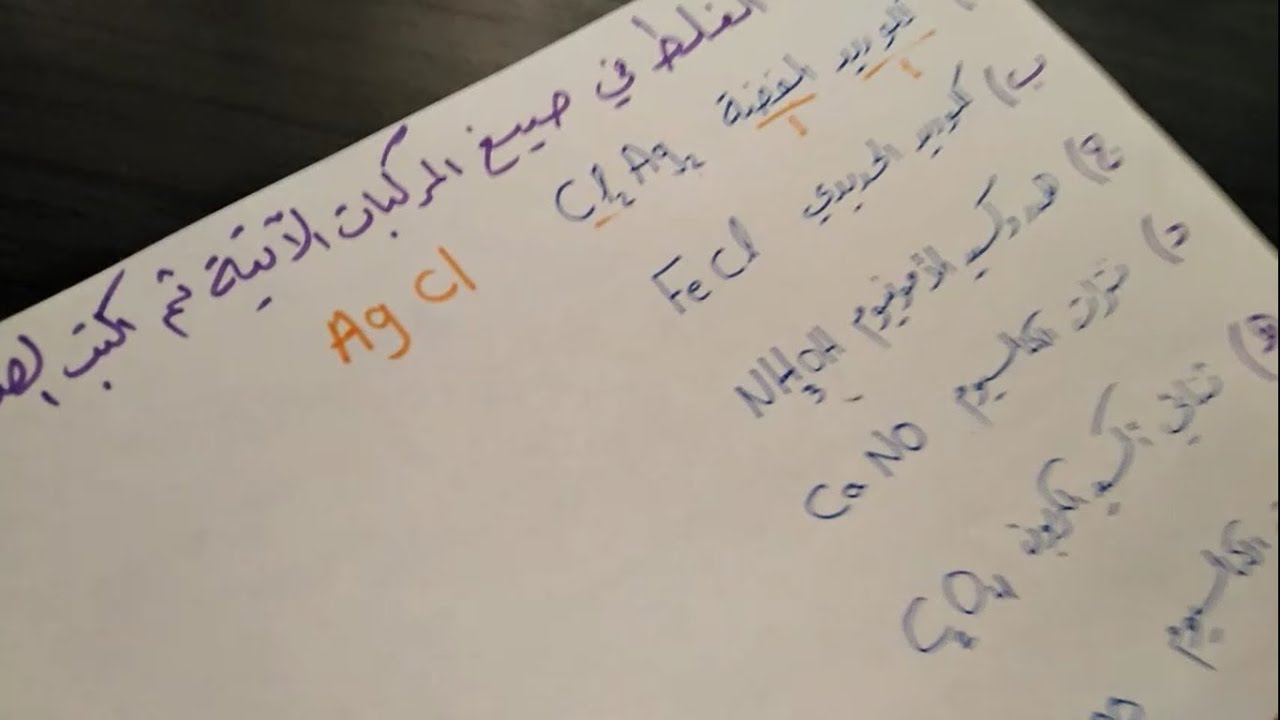 الغلط في صيغ المركبات الآتية ثم اكتب
الفضة Cl₂Ag₂
AgCl
ب) كلوريد الحديدي FeCl
ج) هيدروكسيد الأمونيوم NH₃OH
د) نترات الكالسيوم CaNO
هـ) ثنائي أكسيد الكربون
الكالسيوم